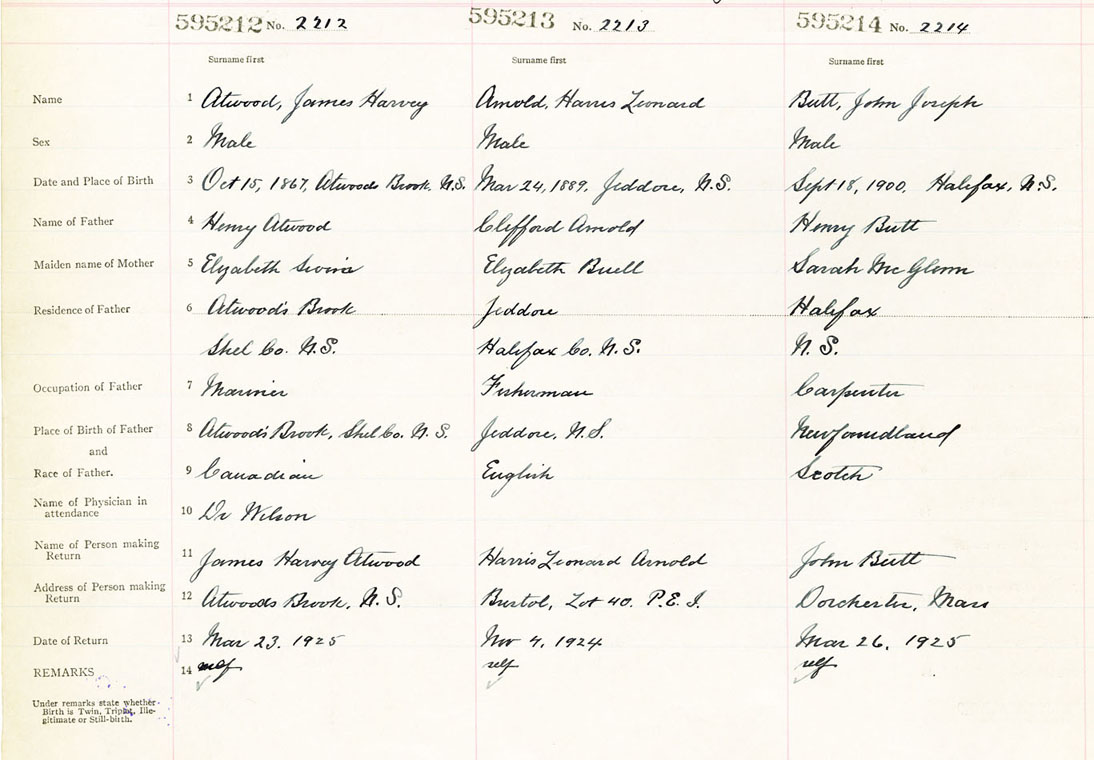 595212 No. 2212 595213 No. 2213 595214 No. 2214
Surname first Surname first Surname first
Name 1 Atwood, James Harvey Arnold, Harris Leonard Butt, John Joseph
Sex 2 Male Male Male
Date and Place of Birth 3 Oct 15, 1867, Atwoods Brook, N.S. Mar 24, 1889, Jeddore, N.S. Sept 18, 1900, Halifax, N.S.
Name of Father 4 Henry Atwood Clifford Arnold Henry Butt
Maiden name of Mother 5 Elyabeth Elyabeth Buell Sarah McGlenn
Residence of Father 6 Atwood's Brook Jeddore Halifax
Shel Co. N.S. Halifax Co. N.S. N.S.
Occupation of Father 7 Mariner Fisherman Carpenter
Place of Birth of Father 8 Atwood's Brook, Shel Co. N.S. Jeddore, N.S. Newfoundland
and
Race of Father. 9 Canadian English Scotch
Name of Physician in
attendance 10 Dr Wilson
Name of Person making
Return 11 James Harvey Atwood Harris Leonard Arnold John Butt
Address of Person making
Return 12 Atwoods Brook, N.S. Bristol, Lot 40. P.E.I. Dorchester, Mass
Date of Return 13 Mar 23, 1925 Nov 4, 1924 Mar 26, 1925
REMARKS 14 self self self
Under remarks state whether
Birth is Twin, Triplet, Ille-
gitimate or Still-birth.